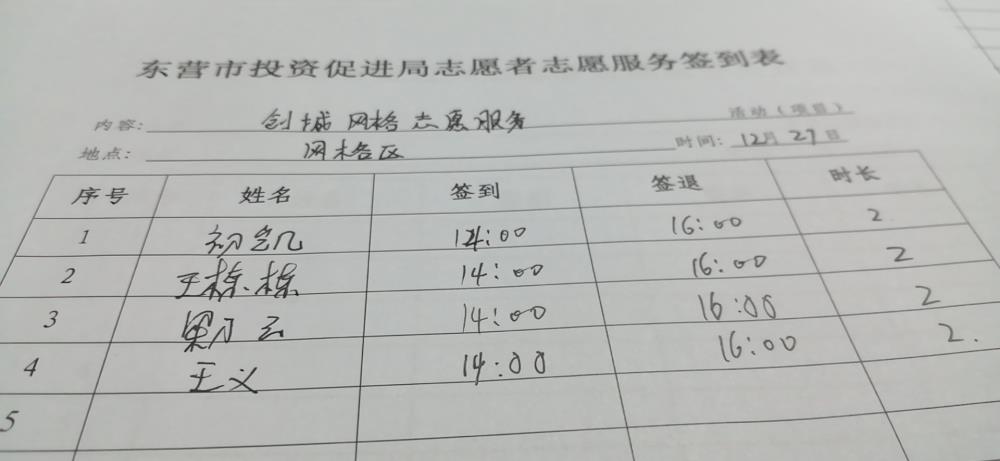 东营市投资促进局志愿者志愿服务签到表
内容: 创城网格志愿服务 活动（项目）
地点: 网格区 时间: 12月27日
序号 姓名 签到 签退 时长
1 14:00 16:00 2
2 王栋栋 14:00 16:00 2
3 14:00 16:00 2
4 王义 14:00 16:00 2.
5